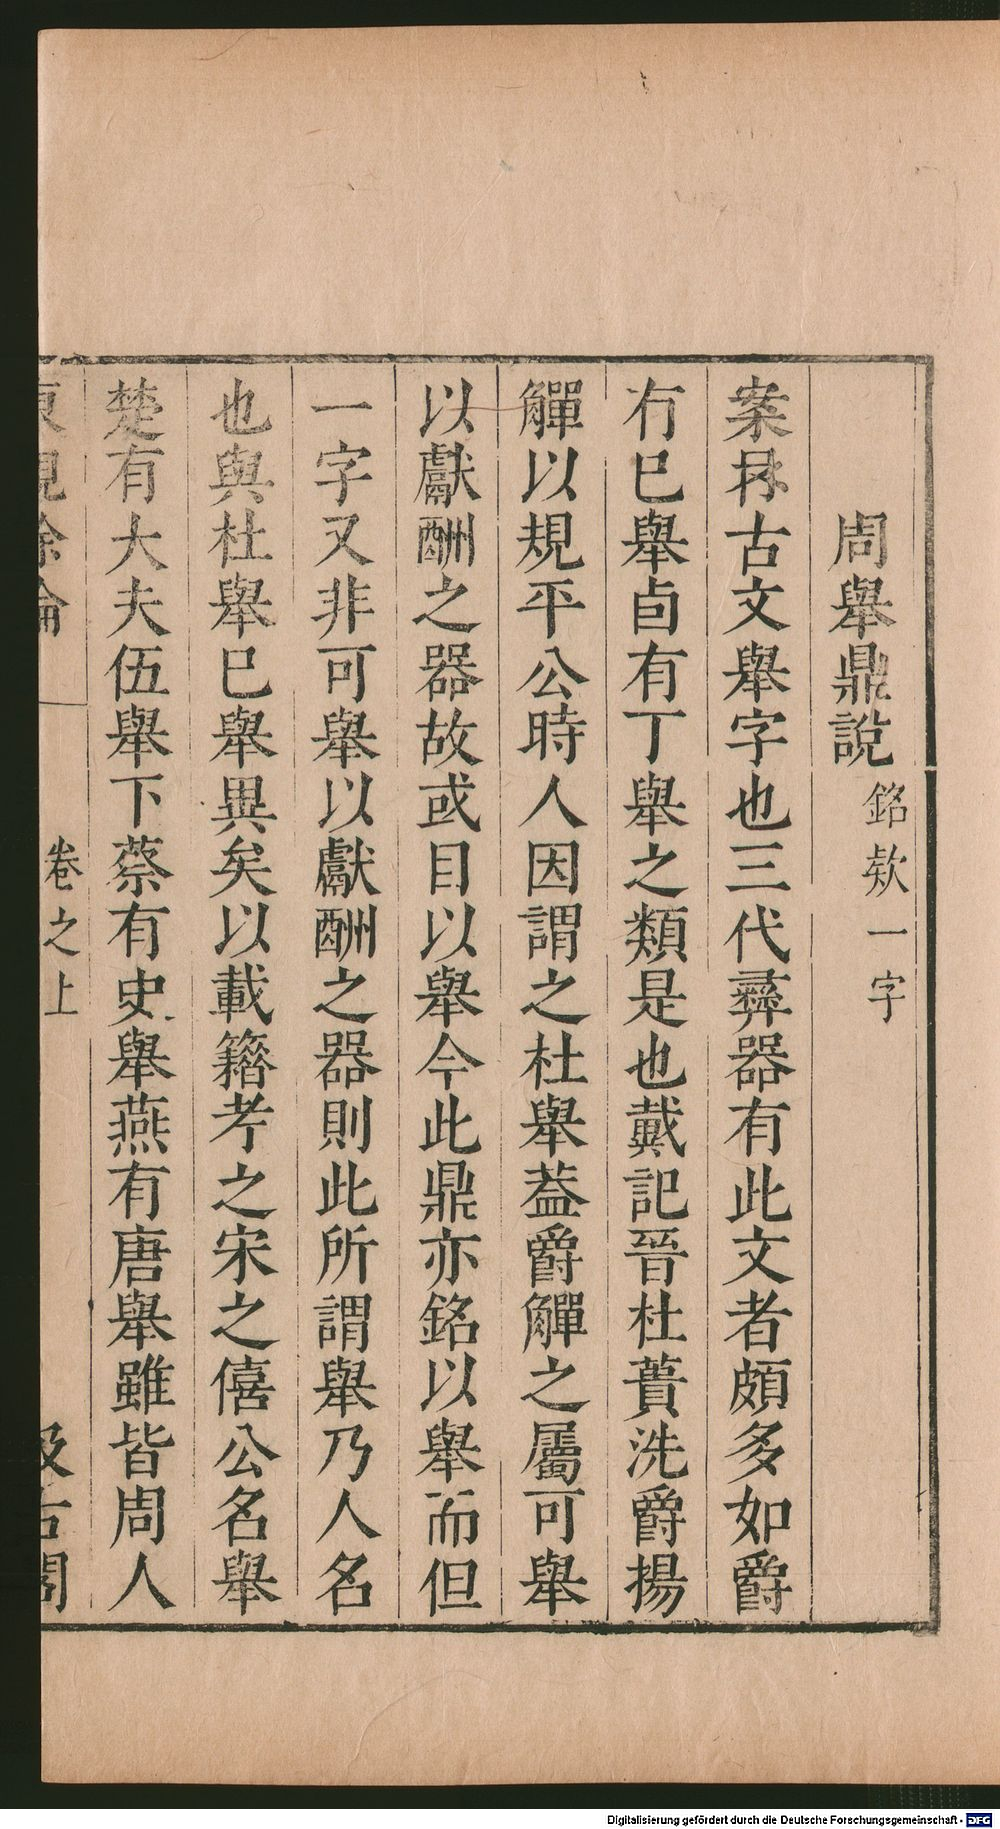 周舉鼎說 銘欵一字
案古文舉字也三代彛器有此文者頗多如爵
有巳舉卣有丁舉之類是也戴記晉杜蕢洗爵揚
觶以規平公時人因謂之杜舉葢爵觶之屬可舉
以獻酬之器故或目以舉今此鼎亦銘以舉而但
一字又非可舉以獻酬之器則此所謂舉乃人名
也與杜舉巳舉異矣以載籍考之宋之僖公名舉
楚有大夫伍舉下蔡有史舉燕有唐舉雖皆周人
東觀餘論 卷之上 汲古閣
Digitalisierung gefördert durch die Deutsche Forschungsgemeinschaft - DFG